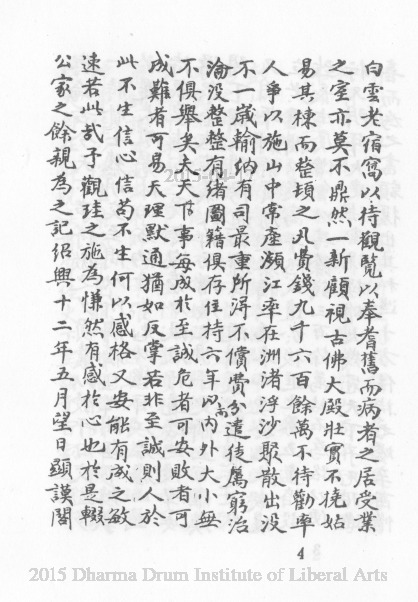 白雲老宿寫以待觀覽以奉耆舊而病者之居受業
之室亦莫不鼎然一新顧視古佛大殿壯實不撓姑
易其棟而整頓之凡費錢九千六百餘萬不待勸率
人爭以施山中常產瀕江率在洲渚浮沙聚散出沒
不一歲輸納有司最重所淂不償費分遣徒屬窮治
淪没整整有緒圖籍俱存住持六年以内外大小無
不俱舉矣夫天下事每成於至誠危者可安敗者可
成難者可易天理默通猶如反掌若非至誠則人於
此不生信心信苟不生何以感格又安能有成之敏
速若此哉予觀珪之施為慊然有感於心也於是輟
公家之餘親為之記紹興十二年五月望日顯謨閣
4
2015 Dharma Drum Institute of Liberal Arts